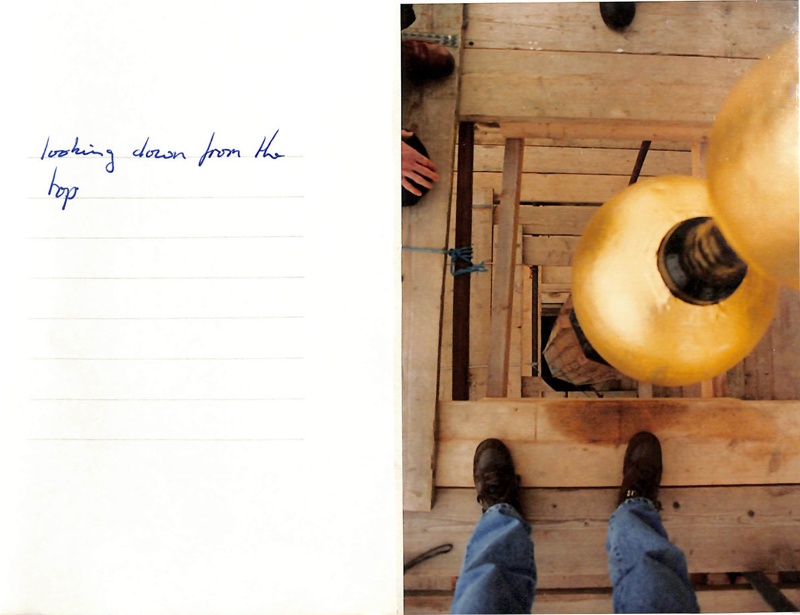 looking down from the
top